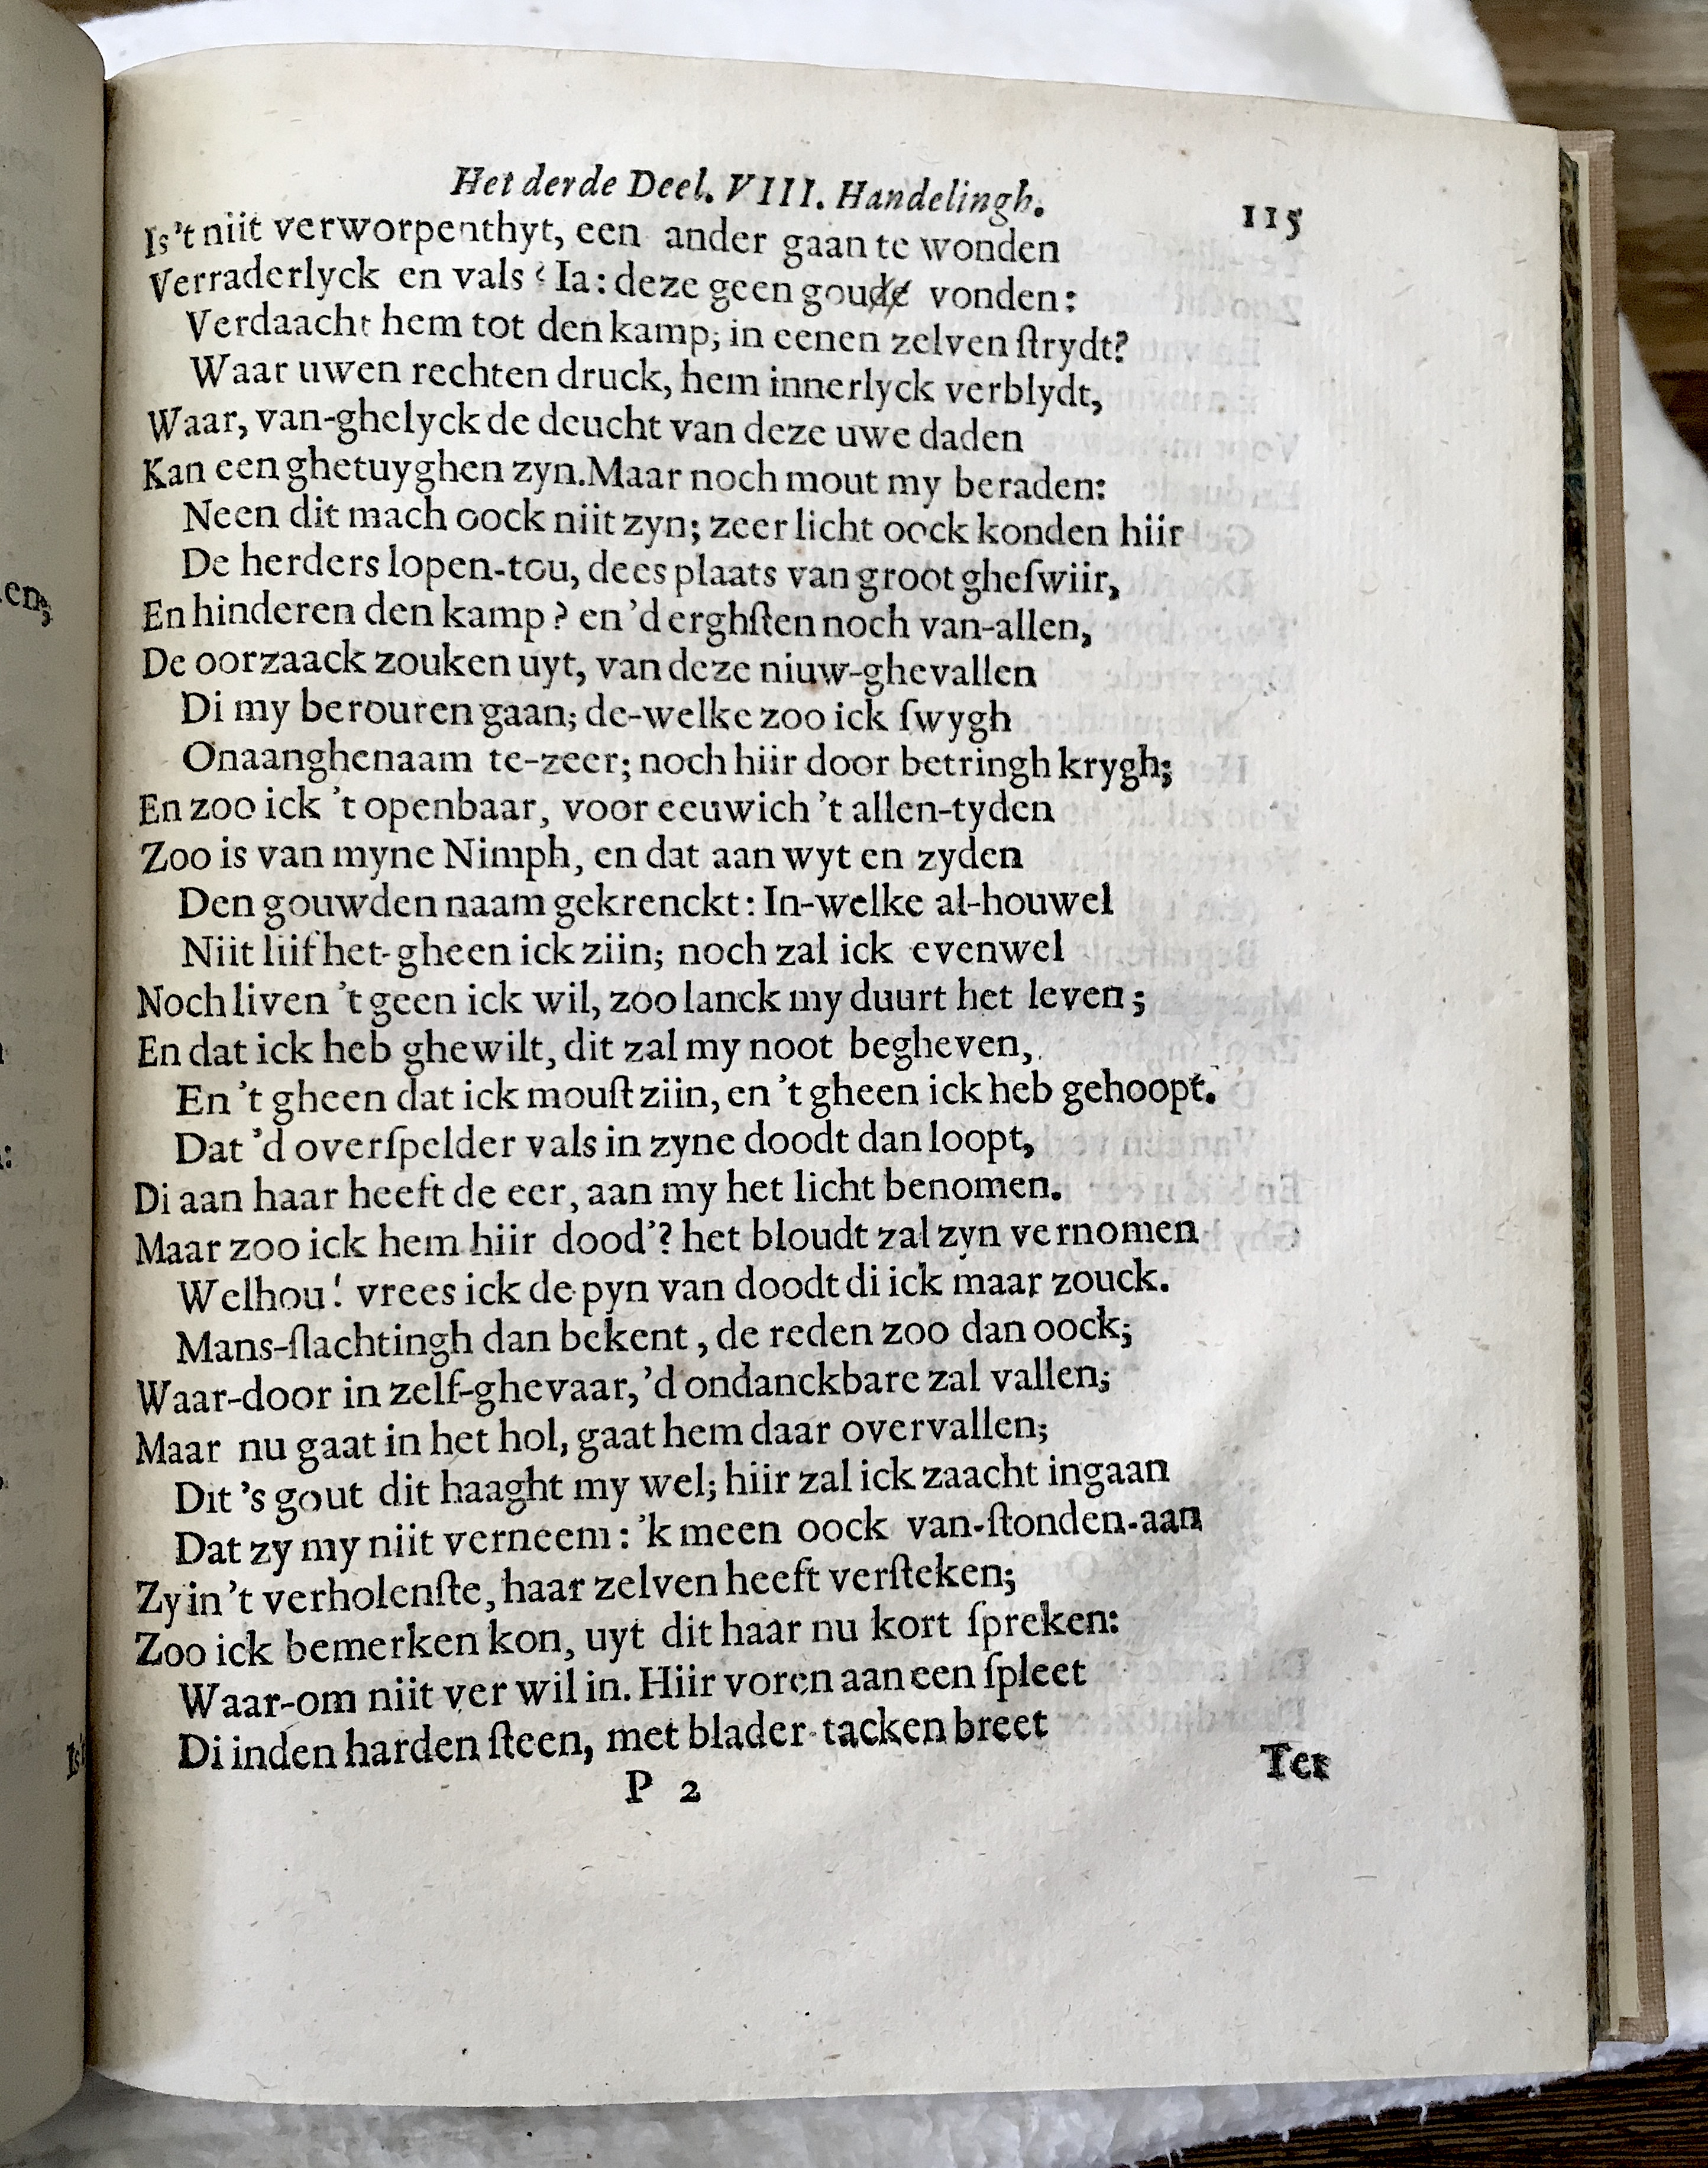 Het derde Deel. VIII. Handelingh. 115
Is't niit verworpenthyt, een ander gaan te wonden
Verraderlyck en vals? Ia: deze geen goude vonden:
Verdaacht hem tot den kamp; in eenen zelven ſtrydt?
Waar uwen rechten druck, hem innerlyck verblydt,
Waar, van-ghelyck de deucht van deze uwe daden
Kan een ghetuyghen zyn. Maar noch mout my beraden:
Neen dit mach oock niit zyn; zeer licht oock konden hiir
De herders lopen-tou, dees plaats van groot gheſwiir,
En hinderen den kamp? en 'd erghſten noch van-allen,
De oorzaack zouken uyt, van deze niuw-ghevallen
Di my berouren gaan; de-welke zoo ick ſwygh
Onaanghenaam te-zeer; noch hiir door betringh krygh;
En zoo ick 't openbaar, voor eeuwich 't allen-tyden
Zoo is van myne Nimph, en dat aan wyt en zyden
Den gouwden naam gekrenckt: In-welke al-houwel
Niit liif het-gheen ick ziin; noch zal ick evenwel
Noch liven 't geen ick wil, zoo lanck my duurt het leven;
En dat ick heb ghewilt, dit zal my noot begheven,
En 't gheen dat ick mouſt ziin, en 't gheen ick heb gehoopt.
Dat 'd overſpelder vals in zyne doodt dan loopt,
Di aan haar heeft de eer, aan my het licht benomen.
Maar zoo ick hem hiir dood'? het bloudt zal zyn vernomen
Welhou! vrees ick de pyn van doodt di ick maar zouck.
Mans-ſlachtingh dan bekent, de reden zoo dan oock;
Waar-door in zelf-ghevaar, 'd ondanckbare zal vallen;
Maar nu gaat in het hol, gaat hem daar overvallen;
Dit 's gout dit haaght my wel; hiir zal ick zaacht ingaan
Dat zy my niit verneem: 'k meen oock van-ſtonden-aan
Zy in 't verholenſte, haar zelven heeft verſteken;
Zoo ick bemerken kon, uyt dit haar nu kort ſpreken:
Waar-om niit ver wil in. Hiir voren aan een ſpleet
Di in den harden ſteen, met blader-tacken breet
P 2 Ter